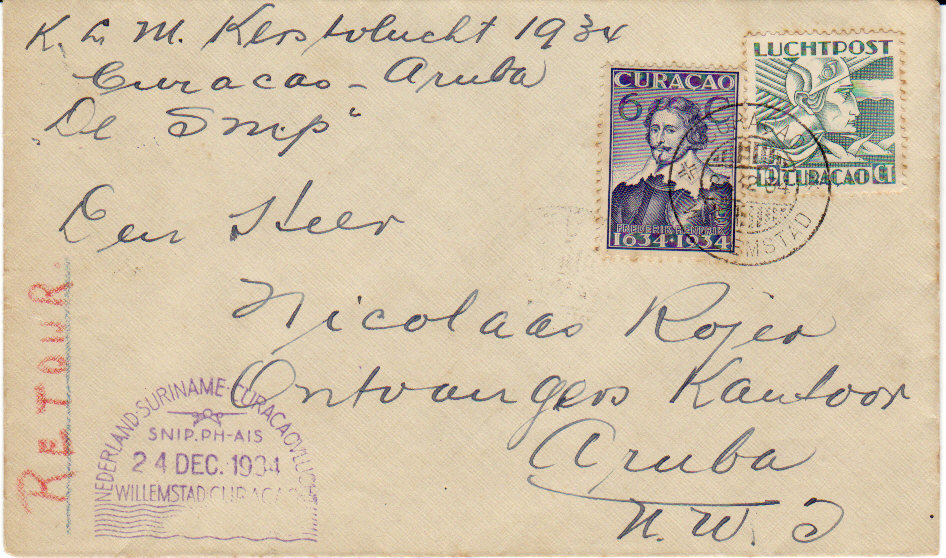 K. L. M. Kerstvlucht 1934
Curacao - Aruba
„De Snip"
CURAÇAO
6 C
FREDERIK HENDRIK
1634·1934
LUCHTPOST
10 CURAÇAO CT
WILLEMSTAD
Den Heer
Nicolaas Rojer
Ontvangers Kantoor
Aruba
N. W. I
RETOUR
NEDERLAND-SURINAME-CURAÇAOVLUCHT
SNIP. PH-AIS
24 DEC. 1934
WILLEMSTAD CURAÇAO